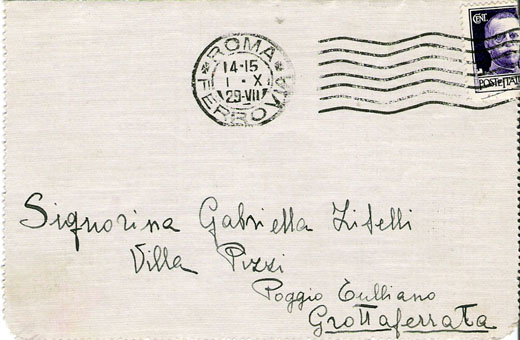 ROMA
14-15
1 · X
29-VII
FERROVIA
CENT.
POSTE ITAL
Signorina Gabriella Zitelli
Villa Pizzi
Poggio Tulliano
Grottaferrata